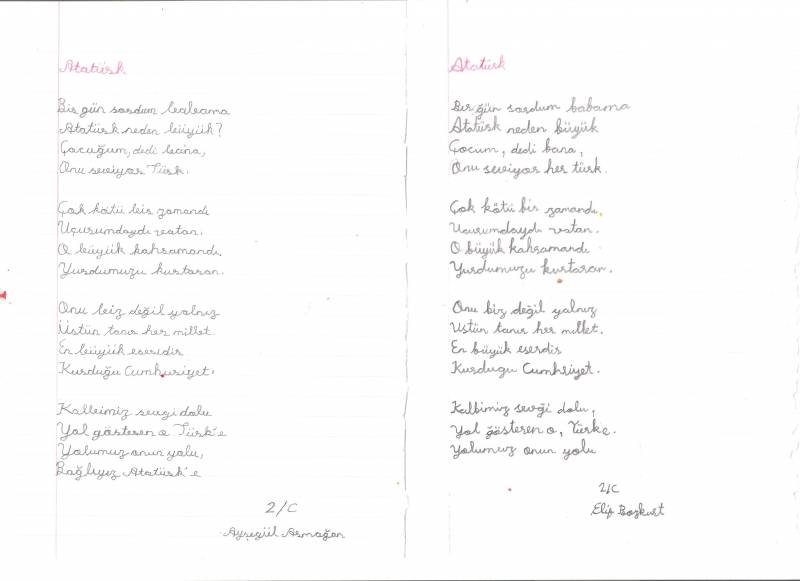 Atatürk
Bir gün sordum babama
Atatürk neden büyük?
Çocuğum, dedi bana,
Onu seviyor Türk.
Çok kötü bir zamandı
Uçurumdaydı vatan.
O büyük kahramandı,
Yurdumuzu kurtaran.
Onu biz değil yalnız
Üstün tanır her millet.
En büyük eseridir
Kurduğu Cumhuriyet.
Kalbimiz sevgi dolu
Yol gösteren o Türk'e
Yolumuz onun yolu,
Bağlıyız Atatürk'e
2/C
Ayşegül Armağan
Atatürk
Bir gün sordum babama
Atatürk neden büyük
Çocum, dedi bana,
Onu seviyor her türk.
Çok kötü bir zamandı.
Ucurumdaydı vatan.
O büyük kahramandı
Yurdumuzu kurtaran.
Onu biz değil yalnız
Ustün tanır her millet.
En büyük eserdir
Kurdugu Cumhriyet.
Kalbimiz sevği dolu,
Yol gösteren o, Türke.
Yolumuz onun yolu
2/C
Elif Bozkurt